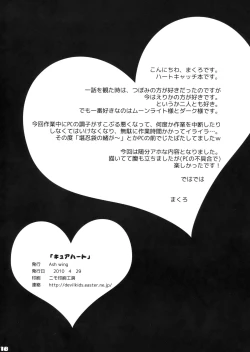 こんにちわ、まくろです。
ハートキャッチ本です。
一話を観た時は、つぼみの方が好きだったのですが
今はえりかの方が好きです。
というか二人とも好き。
でも一番好きなのはムーンライト様とダーク様です。
今回作業中にPCの調子がすこぶる悪くなって、何度か作業を中断したり
しなくてはいけなくなり、無駄に作業時間かかってイライラ…。
その度「堪忍袋の緒が～」とかPCの前でじたばたしてましたw
今回は随分アホな内容となりました。
描いてて腹も立ちましたが(PCの不具合で)
楽しかったです！
ではでは
まくろ
「キュアハート」
発行 Ash wing
発行日 2010 4 29
印刷 ニモ印刷工房
連絡 http://devilkids.easter.ne.jp/
16